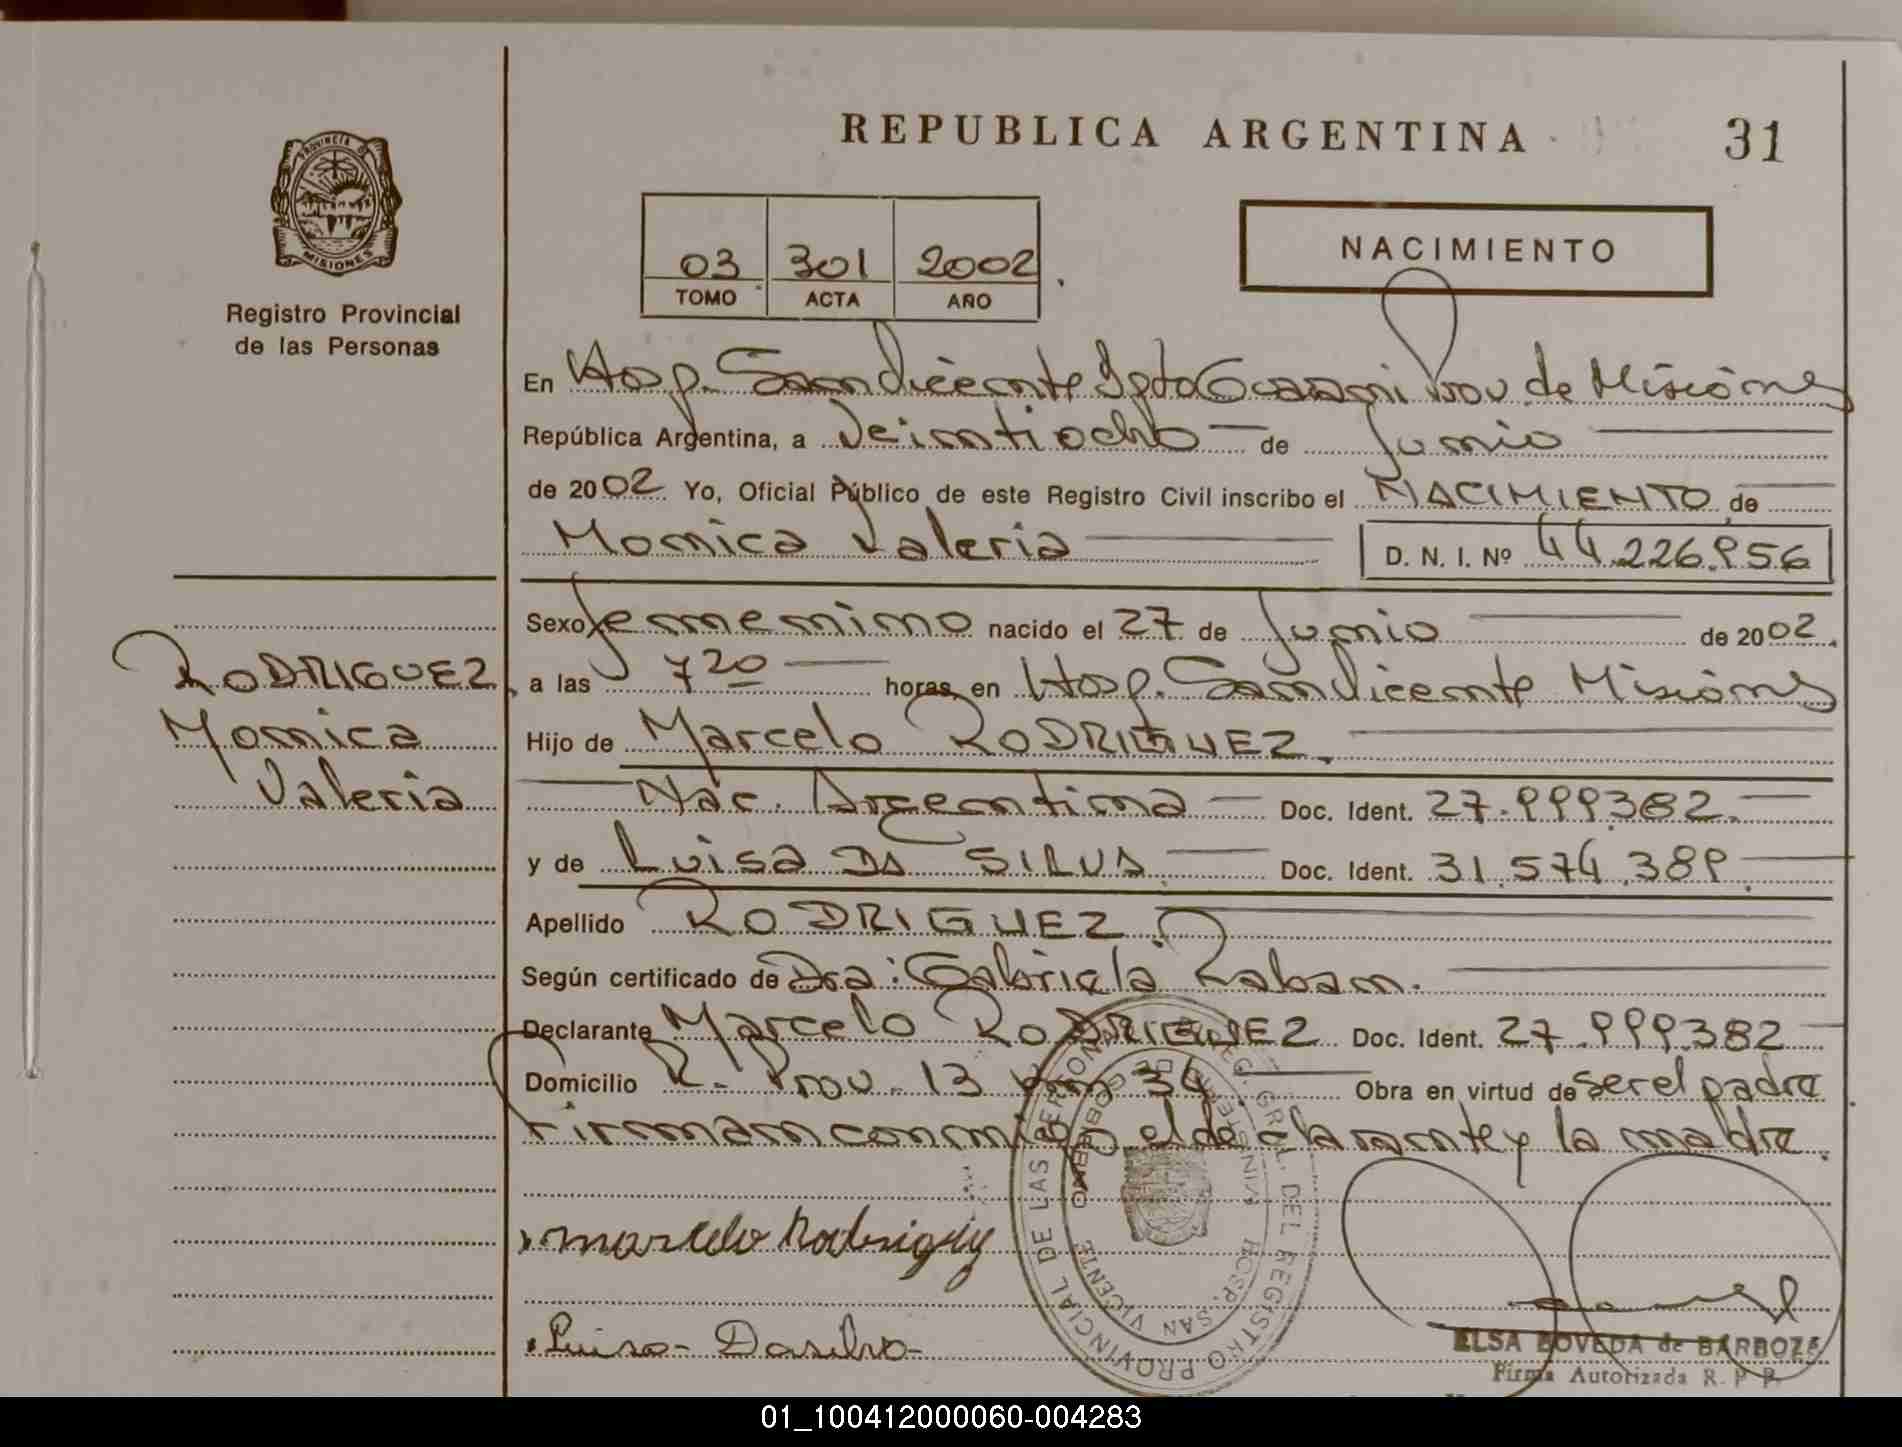 REPUBLICA ARGENTINA
31
PROVINCIA DE
MISIONES
Registro Provincial
de las Personas
03 301 2002
TOMO ACTA AÑO
NACIMIENTO
En Hosp. San Vicente Dpto Guarani Prov. de Misiónes
República Argentina, a Veintiocho de Junio
de 2002 Yo, Oficial Público de este Registro Civil inscribo el NACIMIENTO de
Monica Valeria D. N. I. Nº 44.226.956
Sexo femenino nacido el 27 de Junio de 2002.
a las 7 20 horas, en Hosp. San Vicente Misiónes
Hijo de Marcelo RODRIGUEZ.
Nac. Argentina Doc. Ident. 27.999.382.
y de Luisa DA SILVA Doc. Ident. 31.574.389.
Apellido RODRIGUEZ.
Según certificado de Dra: Gabriela Raban.
Declarante Marcelo RODRIGUEZ Doc. Ident. 27.999.382
Domicilio R. Prov. 13 km 34 Obra en virtud de ser el padre
Firman conmigo el declarante y la madre.
RODRIGUEZ
Monica
Valeria
marcelo Rodriguez
Luisa Dasilva
REGISTRO PROVINCIAL DE LAS PERSONAS
HOSP. SAN VICENTE
ELSA BOVEDA de BARBOZA
Firma Autorizada R. P. P.
01_100412000060-004283